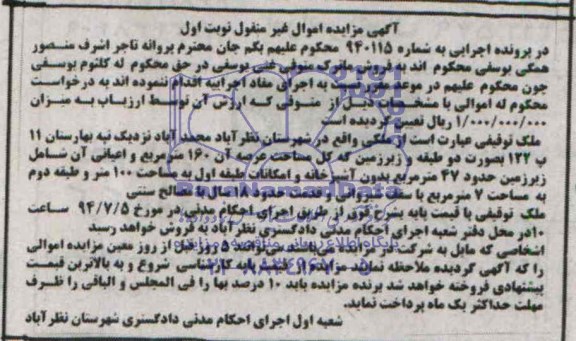 آگهی مزایده اموال غیر منقول نوبت اول
در پرونده اجرایی به شماره ۹۴۰۱۱۵ محکوم علیهم بگم جان محترم پروانه تاجر اشرف منصور
همگی یوسفی محکوم اند به فروش ماترک متوفی غنی یوسفی در حق محکوم له کلثوم یوسفی
چون محکوم علیهم در موعد مقرر نسبت به اجرای مفاد اجراییه اقدام ننموده اند به درخواست
محکوم له اموالی با مشخصات ذیل از متوفی که ارزش آن توسط ارزیاب به میزان
۱/۰۰۰/۰۰۰/۰۰۰ ریال تعیین گردیده است
ملک توقیفی عبارت است از ملکی واقع در شهرستان نظرآباد محمد آباد نزدیک تپه بهارستان ۱۱
پ ۱۲۲ بصورت دو طبقه و زیرزمین که کل مساحت عرصه آن ۱۶۰ مترمربع و اعیانی آن شامل
زیرزمین حدود ۴۷ مترمربع بدون آشپزخانه و امکانات طبقه اول به مساحت ۱۰۰ متر و طبقه دوم
به مساحت ۷ مترمربع با سقف شیروانی و قدمت حدود سال با مصالح سنتی
ملک توقیفی با قیمت پایه بشرح فوق از طریق اجرای احکام مدنی در مورخ ۹۴/۷/۵ ساعت
۱۰در محل دفتر شعبه اجرای احکام مدنی دادگستری نظرآباد به فروش خواهد رسید
اشخاصی که مایل به شرکت در مزایده می باشند می توانند ۵ روز قبل از روز معین مزایده اموالی
را که آگهی گردیده ملاحظه نمایند مزایده از قیمت پایه کارشناسی شروع و به بالاترین قیمت
پیشنهادی فروخته خواهد شد برنده مزایده باید ۱۰ درصد بها را فی المجلس و الباقی را ظرف
مهلت حداکثر یک ماه پرداخت نماید.
شعبه اول اجرای احکام مدنی دادگستری شهرستان نظرآباد